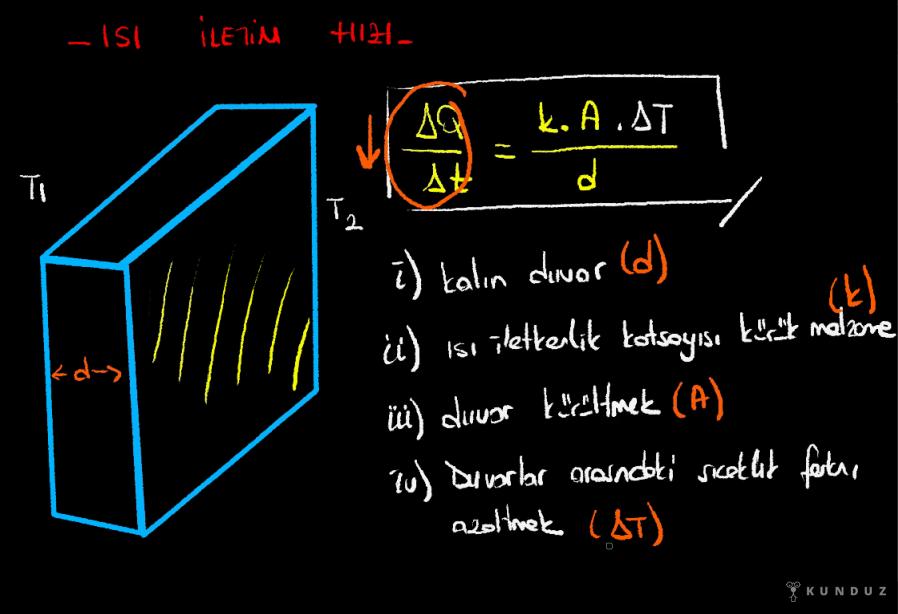 _ ISI İLETİM HIZI _
T1
T2
ΔQ/Δt = k.A.ΔT/d
d
i) kalın duvar (d)
ii) ısı iletkenlik katsayısı küçük malzeme (k)
iii) duvar küçültmek (A)
iv) Duvarlar arasındaki sıcaklık farkı
azaltmek (ΔT)
KUNDUZ